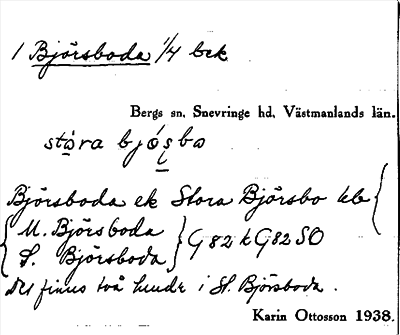 1 Björsboda 1/4 bek
Bergs sn, Snevringe hd, Västmanlands län.
stora bjósbo
Björsboda ek Stora Björsbo kb {
{ M. Björsboda } G 82 k G82SO
S. Björsboda
Det finns två hundr i St. Björsboda.
Karin Ottosson 1938.